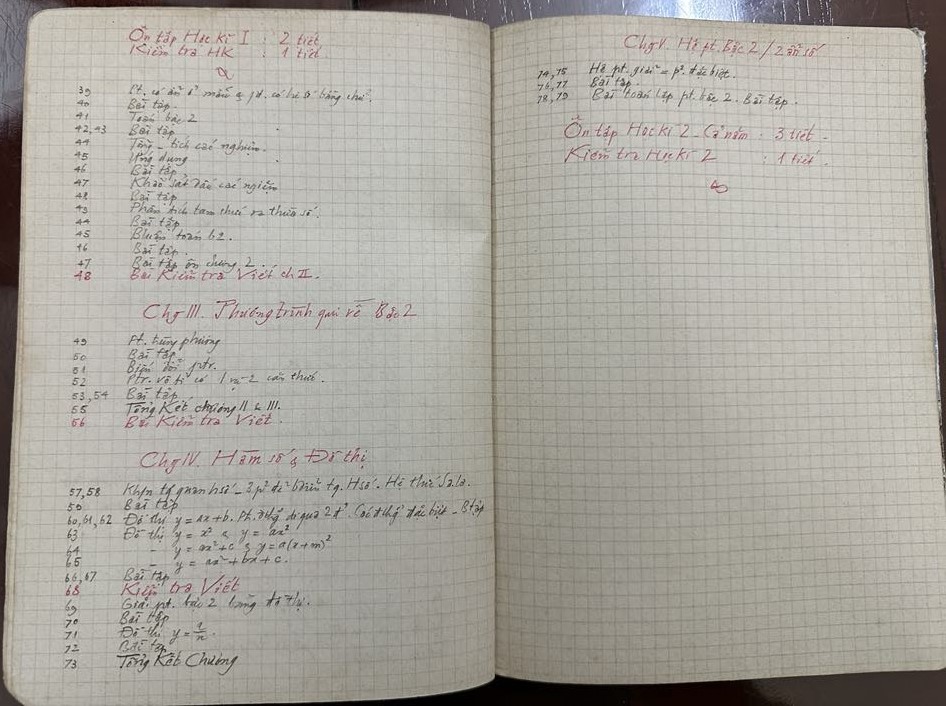 Ôn tập Học kì I : 2 tiết
Kiểm tra HK : 1 tiết.
39 Pt. có ẩn ở mẫu & pt. có hệ số bằng chữ.
40 Bài tập.
41 Toán bậc 2
42,43 Bài tập
44 Tổng _ tích các nghiệm.
45 Ứng dụng
46 Bài tập
47 Khảo sát dấu các nghiệm
48 Bài tập
43 Phân tích tam thức ra thừa số.
44 Bài tập
45 Bluận toán b2.
46 Bài tập.
47 Bài tập ôn chương 2.
48 Bài Kiểm tra Viết ch II.
Chg III. Phương trình qui về Bậc 2
49 Pt. trùng phương
50 Bài tập
51 Biến đổi ptr.
52 Ptr. vô tỉ có 1 và 2 căn thức.
53,54 Bài tập
55 Tổng Kết chương II & III.
56 Bài Kiểm tra Viết.
Chg IV. Hàm số & Đồ thị
57,58 Khṇ tg quan hsố _ 3 p² để biểu tg. Hsố. Hệ thức
59 Bài tập
60,61,62 Đồ thị y = ax + b. Pt. đthg đi qua 2 đ². Các đthg đặc biệt _ Btập
63 Đồ thị y = x² & y = ax²
64 - y = ax² + c & y = a(x + m)²
65 - y = ax² + bx + c.
66,67 Bài tập
68 Kiểm tra Viết
69 Giải pt. bậc 2 bằng đồ thị.
70 Bài tập
71 Đồ thị y = 1/x.
72 Bài tập
73 Tổng Kết Chương
Chg V. Hệ pt. Bậc 2 / 2 ẩn số
74,75 Hệ pt. giải = p² đặc biệt.
76,77 Bài tập
78,79 Bài toán lập pt. bậc 2. Bài tập.
Ôn tập Học kì 2 _ Cả năm : 3 tiết.
Kiểm tra Học kì 2 : 1 tiết.